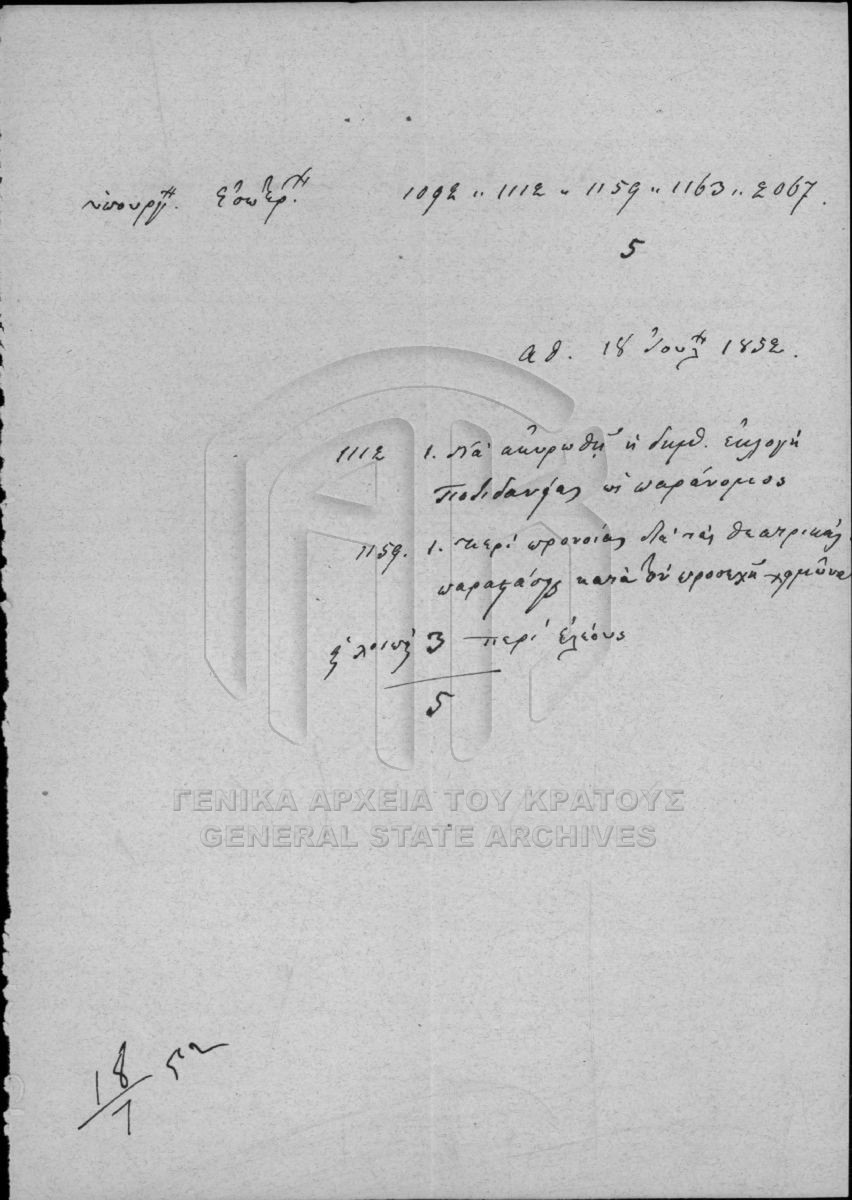 Ὑπουργ. Ἐσωτερ. 1092 " 1112 " 1159 " 1163 " 2067.
5
Ἀθ. 18 Ἰουλ 1852.
1112 1. Νὰ ἀκυρωθῇ ἡ δημθ. ἐκλογὴ
ὡς παράνομος
1159. 1. περὶ προνοίας διὰ τὰς θεατρικὰς
παραστάσεις κατὰ τὸν προσεχῆ χειμῶνα
λοιπὰ 3 περὶ ἐλέους
5
ΓΕΝΙΚΑ ΑΡΧΕΙΑ ΤΟΥ ΚΡΑΤΟΥΣ
GENERAL STATE ARCHIVES
18/7 52